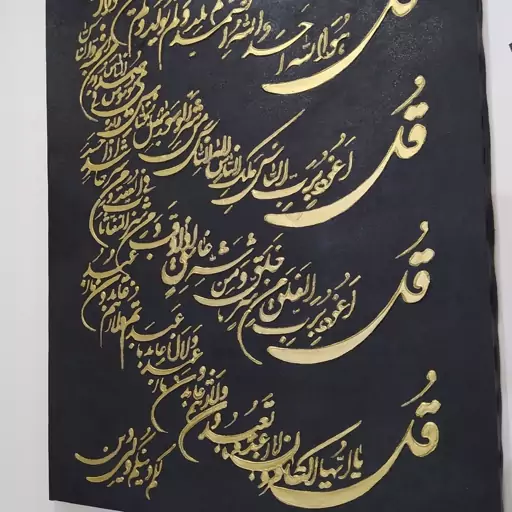 قل هو الله احد الله الصمد لم یلد و لم یولد و لم
قل اعوذ برب الناس ملک الناس اله الناس من شر الوسواس الخناس
قل اعوذ برب الفلق من شر ما خلق و من شر غاسق اذا وقب و من شر النفاثات فی العقد و من شر حاسد اذا حسد
قل یا ایها الکافرون لا اعبد ما تعبدون و لا انتم عابدون ما اعبد و لا انا عابد ما عبدتم و لا انتم عابدون ما اعبد لکم دینکم ولی دین